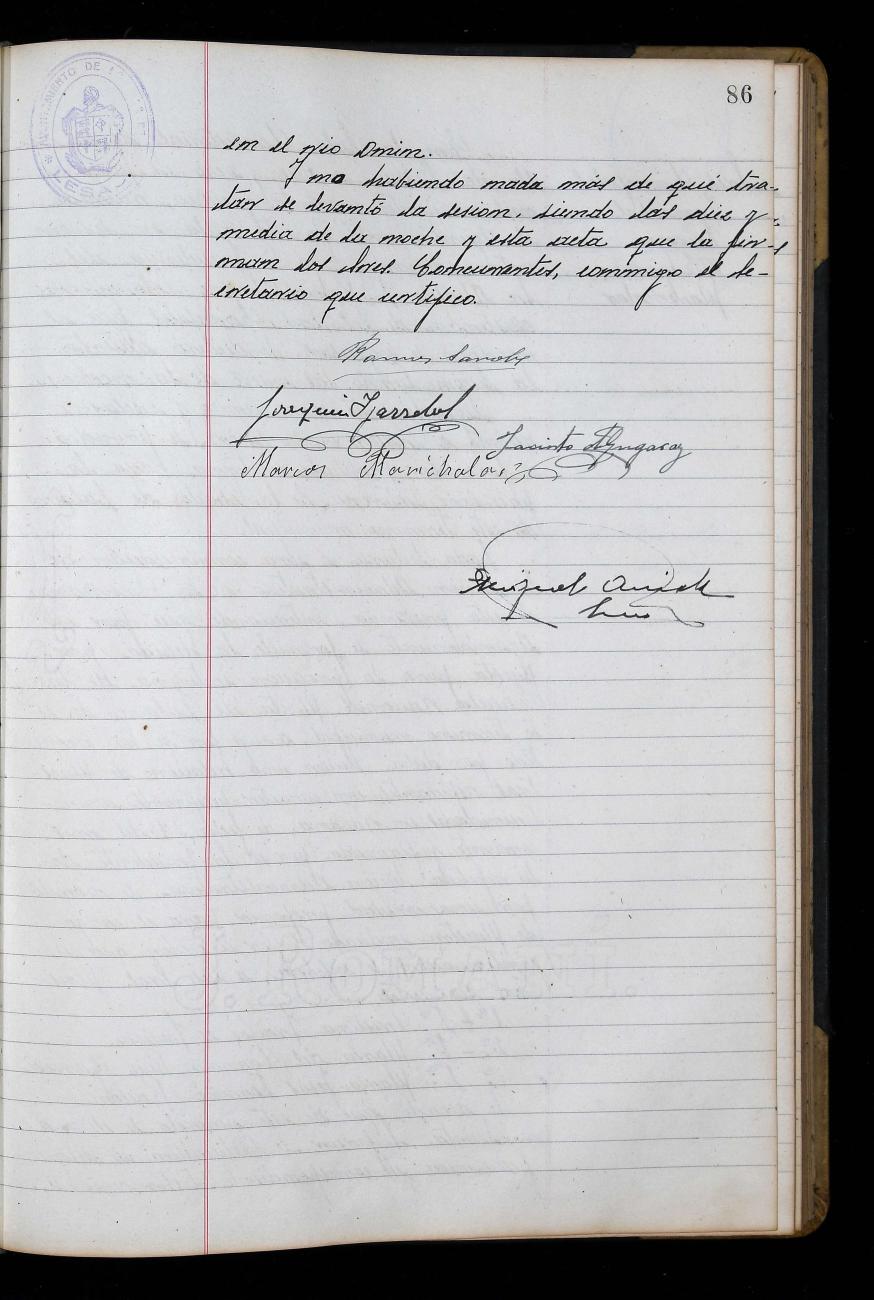 86
AYUNTAMIENTO DE
LESACA
en el rio Onin.
Y no habiendo nada más de qué tra-
tár se levantó la sesion, siendo las diez y
media de la noche y esta acta que la fir-
man los Sres. Concurrentes, conmigo el Se-
cretario que certifico.
Ramon
Joaquin
Jacinto
Marcos Marichalar
Miguel